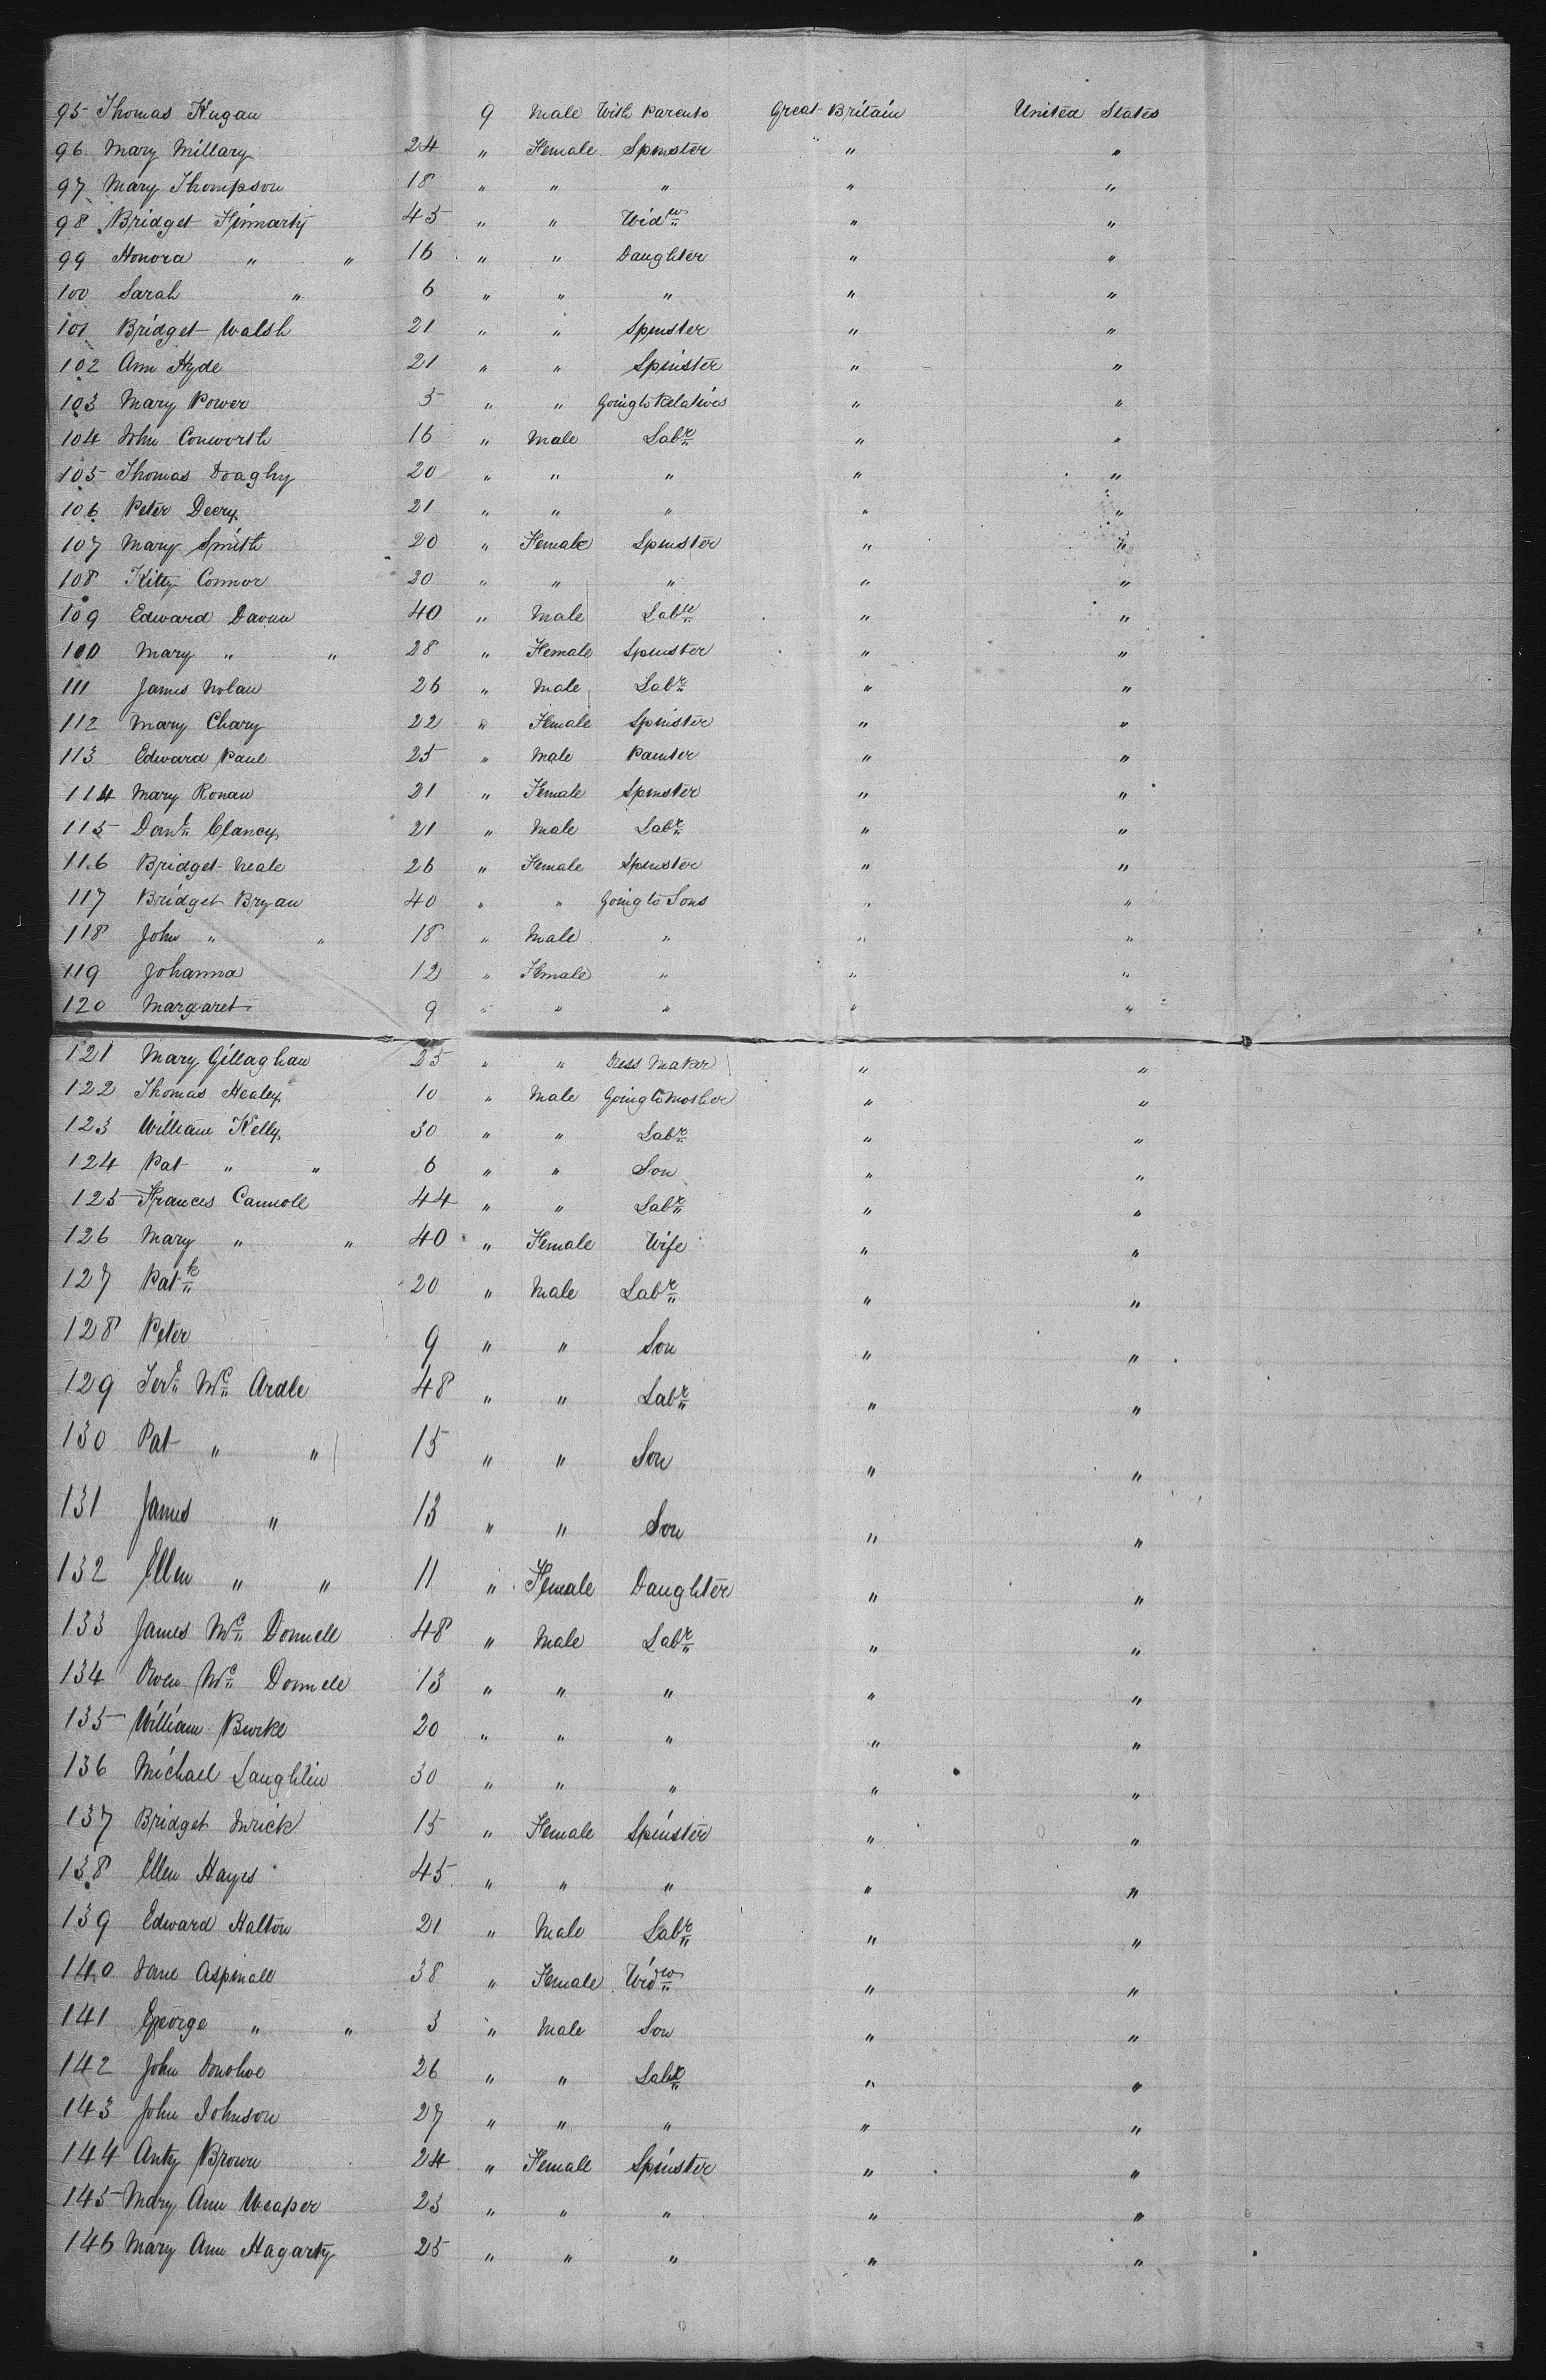 95 Thomas Kugan 9 Male With Parents Great Britain United States
96 Mary Millary 24 " Female Spinster " "
97 Mary Thompson 18 " " " " "
98 Bridget Finnarty 45 " " Widw " "
99 Honora " " 16 " " Daughter " "
100 Sarah " 6 " " " " "
101 Bridget Walsh 21 " " Spinster " "
102 Ann Hyde 21 " " Spinster " "
103 Mary Power 5 " " Going to Relatives " "
104 John Conworth 16 " Male Labr " "
105 Thomas Doaghy 20 " " " " "
106 Peter Deery 21 " " " " "
107 Mary Smith 20 " Female Spinster " "
108 Kitty Connor 20 " " " " "
109 Edward Davun 40 " Male Labr " "
100 Mary " " 28 " Female Spinster " "
111 James Nolan 26 " Male Labr " "
112 Mary Chary 22 " Female Spinster " "
113 Edward Paul 25 " Male Painter " "
114 Mary Ronan 21 " Female Spinster " "
115 Danl Clancy 21 " Male Labr " "
116 Bridget Neale 26 " Female Spinster " "
117 Bridget Bryan 40 " " Going to Sons " "
118 John " " 18 " Male " " "
119 Johanna 12 " Female " " "
120 Margaret 9 " " " " "
121 Mary Gillaghan 25 " " Dress Maker " "
122 Thomas Healey 10 " Male Going to Mother " "
123 William Kelly 30 " " Labr " "
124 Pat " " 6 " " Son " "
125 Frances Cannoll 44 " " Labr " "
126 Mary " " 40 " Female Wife " "
127 Patk 20 " Male Labr " "
128 Peter 9 " " Son " "
129 Mc Ardle 48 " " Labr " "
130 Pat " " 15 " " Son " "
131 James " 13 " " Son " "
132 Ellen " " 11 " Female Daughter " "
133 James Mc Donnell 48 " Male Labr " "
134 Owen Mc Donnele 13 " " " " "
135 William Burke 20 " " " " "
136 Michael Laughlin 30 " " " " "
137 Bridget 15 " Female Spinster " "
138 Ellen Hayes 45 " " " " "
139 Edward Halton 21 " Male Labr " "
140 Jane Aspinall 38 " Female Widw " "
141 George " " 3 " Male Son " "
142 John Donohoe 26 " " Labr " "
143 John Johnson 27 " " " " "
144 Anty Brown 24 " Female Spinster " "
145 Mary Ann Weaper 23 " " " " "
146 Mary Ann Hagarty 25 " " " " "